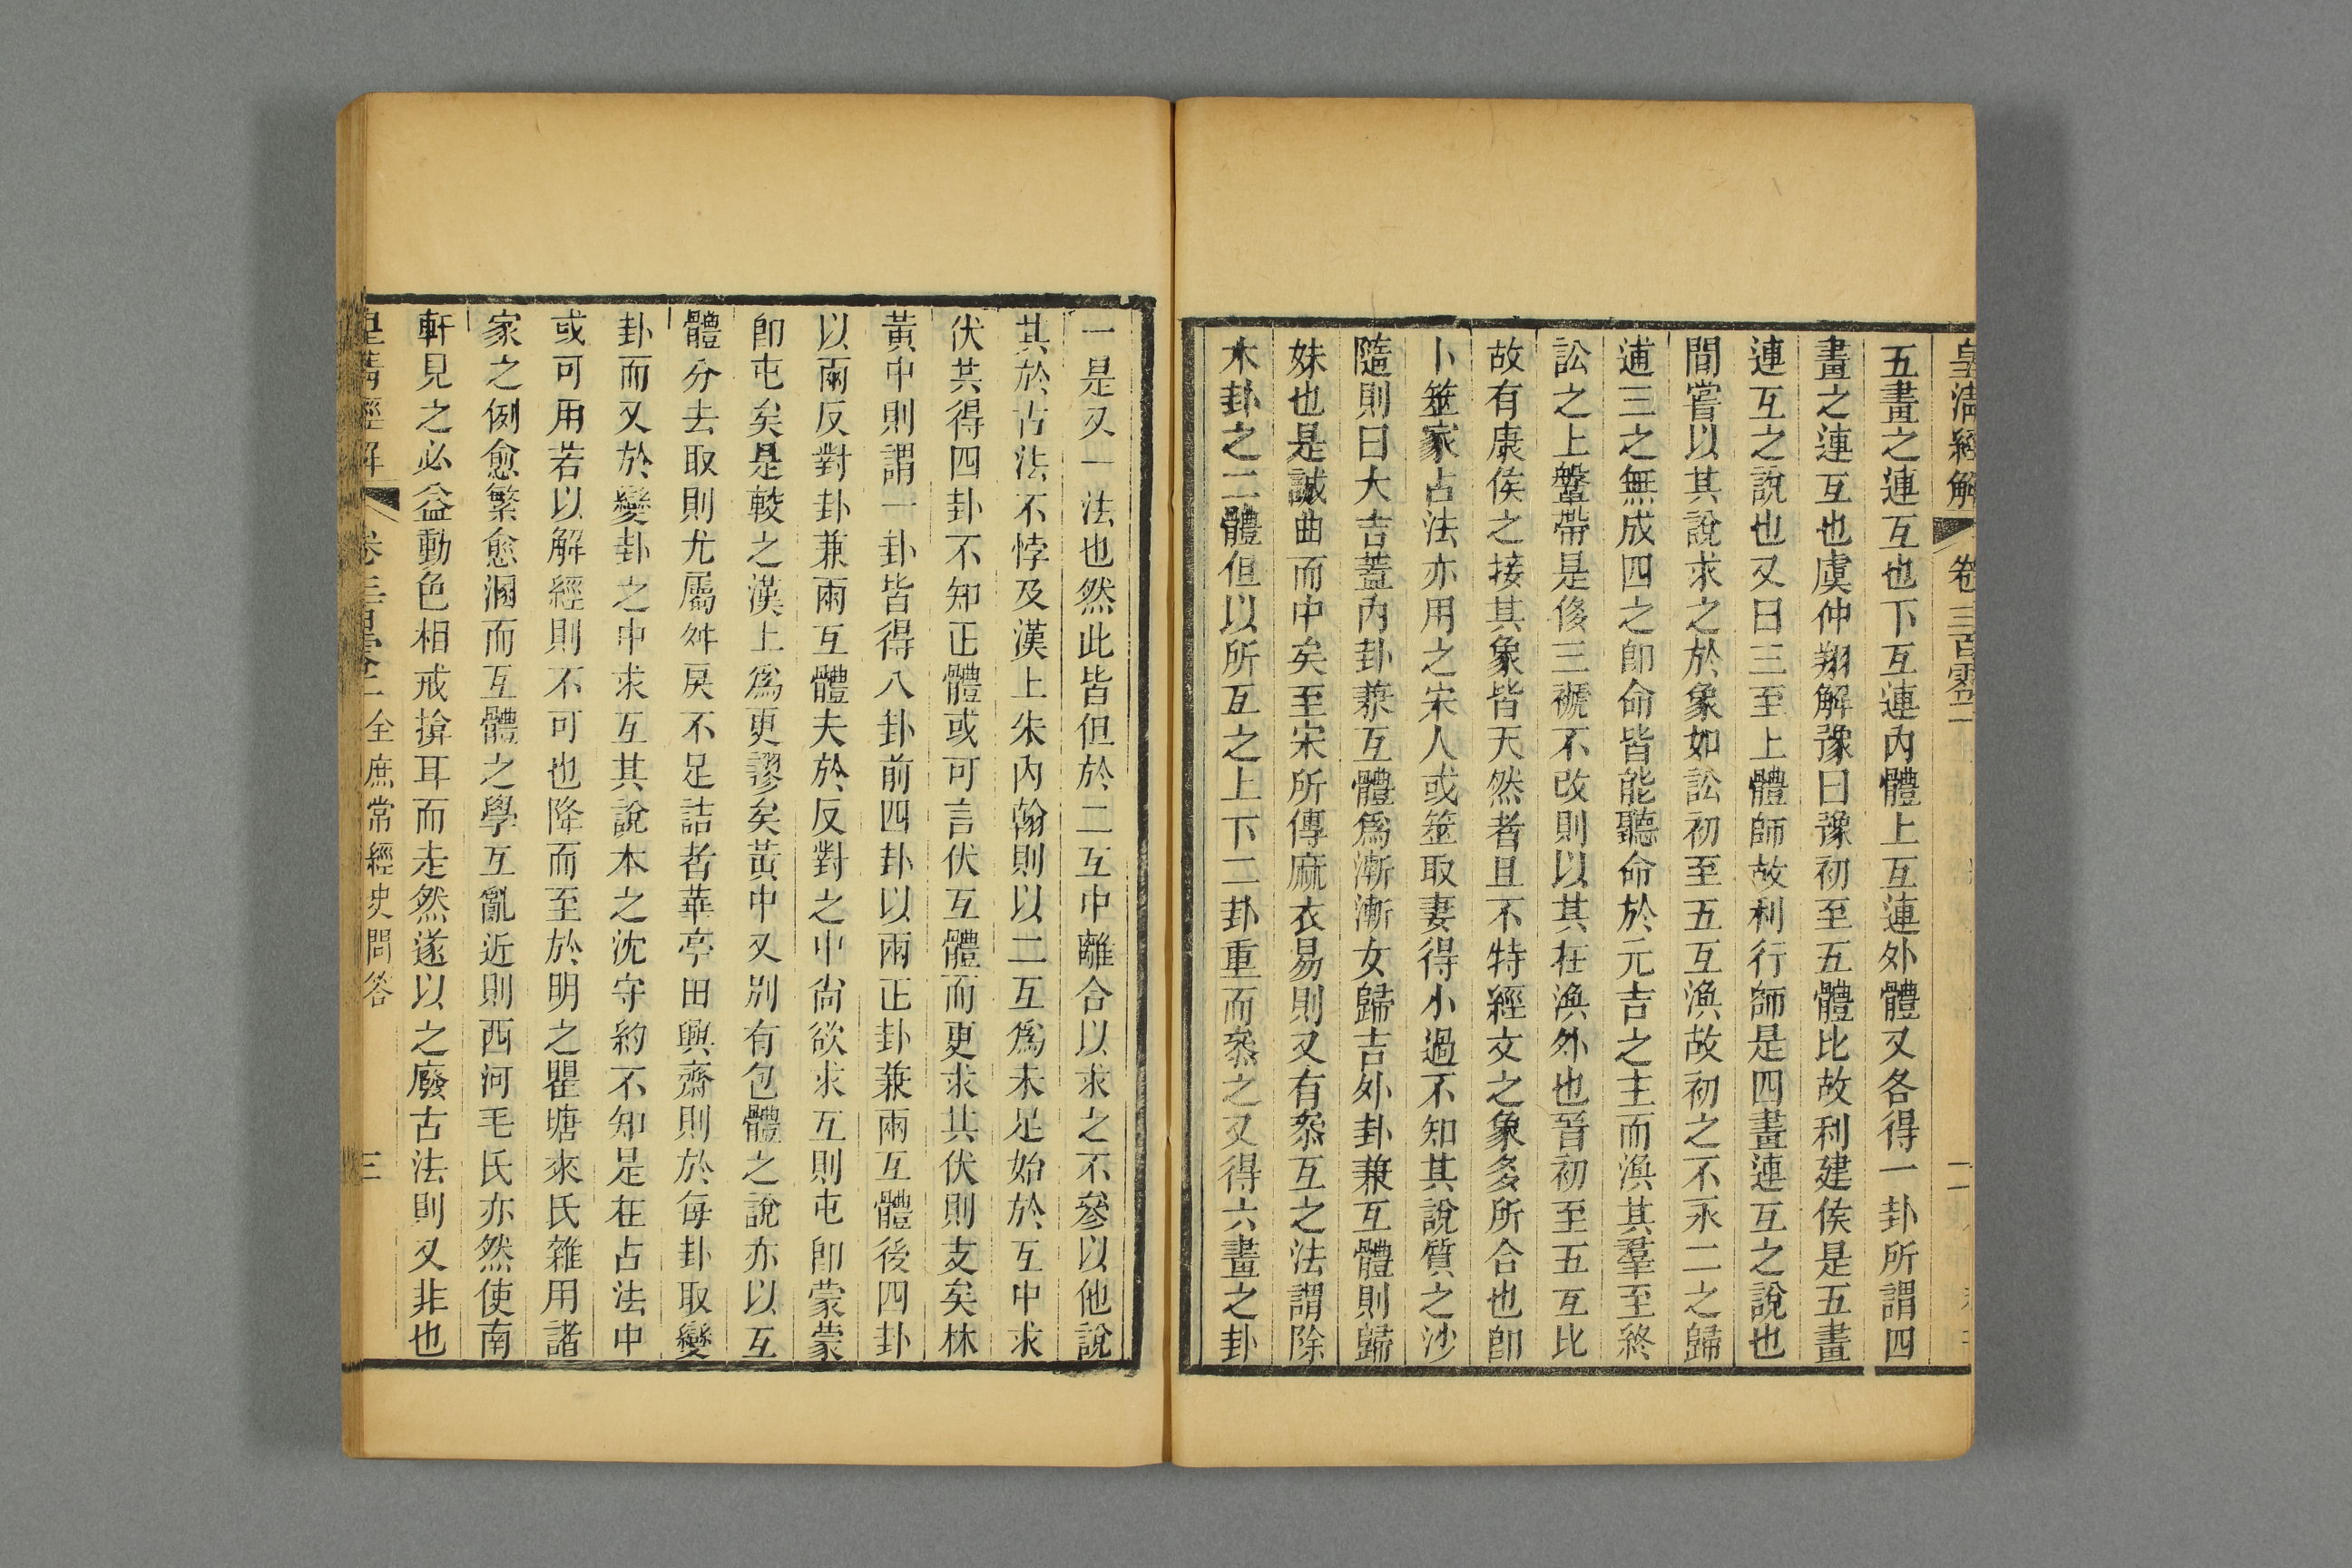 皇清經解 卷三百零二 二
五畫之連互也下互連內體上互連外體又各得一卦所謂四
畫之連互也虞仲翔解豫曰豫初至五體比故利建侯是五畫
連互之說也又曰三至上體師故利行師是四畫連互之說也
間嘗以其說求之於象如訟初至五互渙故初之不永二之歸
逋三之無成四之卽命皆能聽命於元吉之主而渙其羣至終
訟之上鞶帶是後三褫不改則以其在渙外也晉初至五互比
故有康侯之接其象皆天然者且不特經文之象多所合也卽
卜筮家占法亦用之宋人或筮取妻得小過不知其說質之沙
隨則曰大吉蓋內卦兼互體爲漸漸女歸吉外卦兼互體則歸
妹也是誠曲而中矣至宋所傳麻衣易則又有叅互之法謂除
本卦之二體但以所互之上下二卦重而叅之又得六畫之卦
一是又一法也然此皆但於二互中離合以求之不參以他說
其於古法不悖及漢上朱內翰則以二互爲未足始於互中求
伏其得四卦不知正體或可言伏互體而更求其伏則支矣林
黃中則謂一卦皆得八卦前四卦以兩正卦兼兩互體後四卦
以兩反對卦兼兩互體夫於反對之中尙欲求互則屯卽蒙蒙
卽屯矣是較之漢上爲更謬矣黃中又別有包體之說亦以互
體分去取則尤屬舛戾不足詰者華亭田興齋則於每卦取變
卦而又於變卦之中求互其說本之沈守約不知是在占法中
或可用若以解經則不可也降而至於明之瞿塘來氏雜用諸
家之例愈繁愈溷而互體之學互亂近則西河毛氏亦然使南
軒見之必益動色相戒揜耳而走然遂以之廢古法則又非也
皇清經解 卷三百零二 全庶常經史問答 三